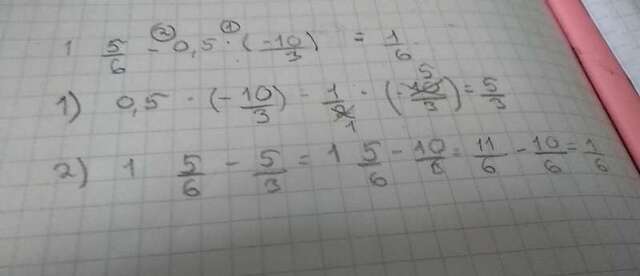 1 5/6 -② 0,5 ·① (-10/3) = 1/6.
1) 0,5 · (-10/3) - 1/2̸ 1 · (-1̸0̸ 5/3) = 5/3
2) 1 5/6 - 5/3 = 1 5/6 - 10/6 = 11/6 - 10/6 = 1/6